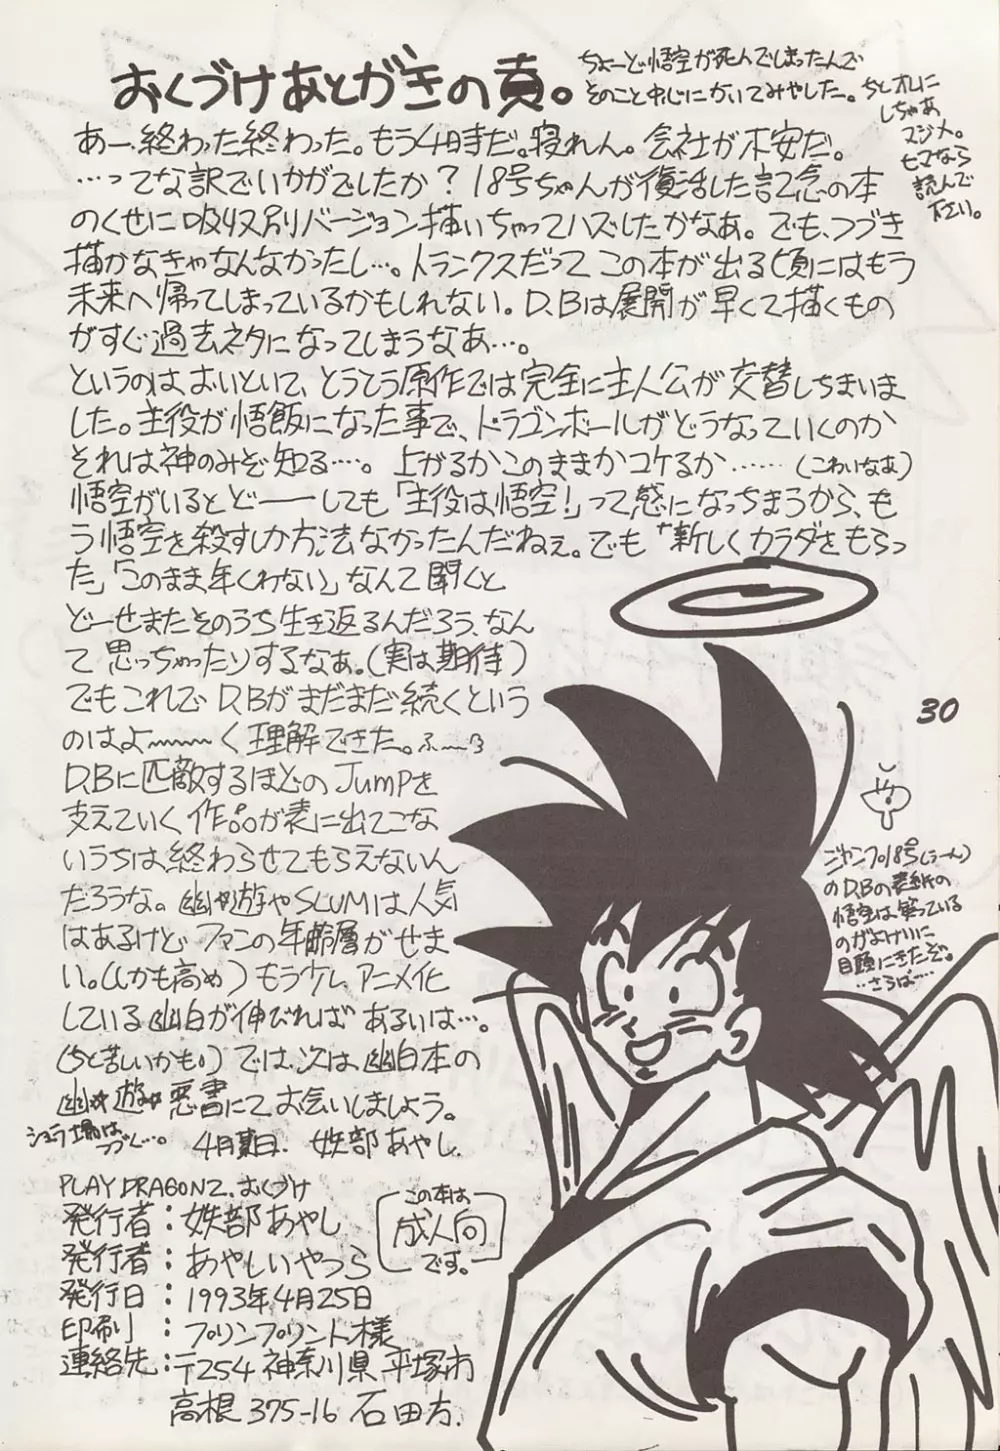 おくづけあとがきの頁。
ちょーど悟空が死んでしまったんで
そのこと中心にかいてみやした。ちとオレに
しちゃあ
マジメ。
ヒマなら
読んで
下さい。
あー、終わった終わった。もう4時だ。寝れん。会社が不安だ。
…ってな訳でいかがでしたか？18号ちゃんが復活した記念の本
のくせに吸収別バージョン描いちゃってハズしたかなあ。でも、つづき
描かなきゃなんなかったし…。トランクスだって この本が出る頃にはもう
未来へ帰ってしまっているかもしれない。D.Bは展開が早くて描くもの
がすぐ過去ネタになってしまうなあ…。
というのは、おいといて、とうとう原作では完全に主人公が交替しちまいま
した。主役が悟飯になった事で、ドラゴンボールがどうなっていくのか
それは神のみぞ知る…。上がるかこのままかコケるか……（こわいなあ）
悟空がいるとど──しても「主役は悟空！」って感になっちまうから、も
う悟空を殺すしか方法なかったんだねぇ。でも“新しくカラダをもらっ
た」「このまま年くわない」なんて聞くと
どーせまたそのうち生き返るんだろう、なん
て思っちゃったりするなあ。（実は期待）
でもこれでD.Bがまだまだ続くという
のはよ〜〜〜く理解できた。ふ〜う
D.Bに匹敵するほどのJumpを
支えていく作品が表に出てこな
いうちは、終わらせてもらえないん
だろうな。幽☆遊やSLUMは人気
はあるけど ファンの年齢層がせま
い。（しかも高め）もうすぐアニメ化
している幽白が伸びれば あるいは…。
（ちと苦しいかも。）では、次は幽白本の
幽☆遊☆悪書にてお会いしましょう。
つづく…。
4月某日. 妖部あやし.
PLAY DRAGON2. おくづけ
発行者：妖部あやし
発行者：あやしいやつら
発行日：1993年4月25日
印刷：プリンプリント様
連絡先：〒254 神奈川県平塚市
高根375-16 石田方.
この本は
成人向
です。
30
ジャンプ18号(うーん)
のD.Bの表紙の
悟空は、笑っている
のがよけいに
目頭にきたぞ。
…さらば……